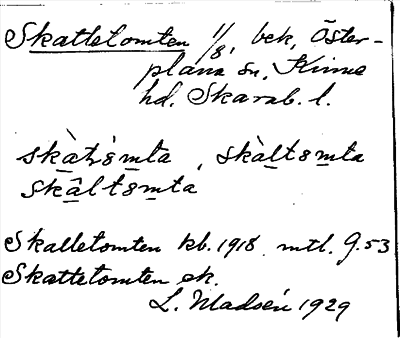 Skattetomten 1/8, bek, Öster-
plana sn. Kinne
hd. Skarab. l.
skàt,sm̲ta, skàltsm̲ta
skâltsm̲ta
Skalletomten kb. 1918. mtl. 9.53
Skattetomten ek.
L. Madsén 1929